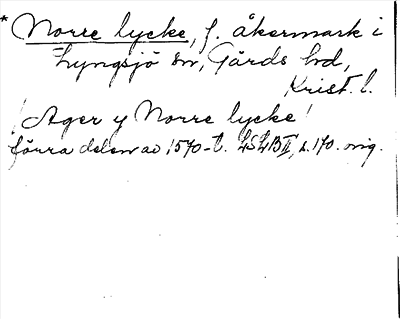 * Norre lycke, f. åkermark i
Lyngsjö sn, Gärds hd,
Krist. l.
! Ager y Norre lycke !
förra delen av 1570-t. LSLBII, s. 170. orig.